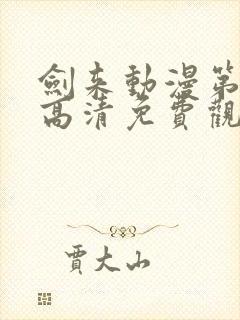 劍来動漫第
高清免費觀
賈大山